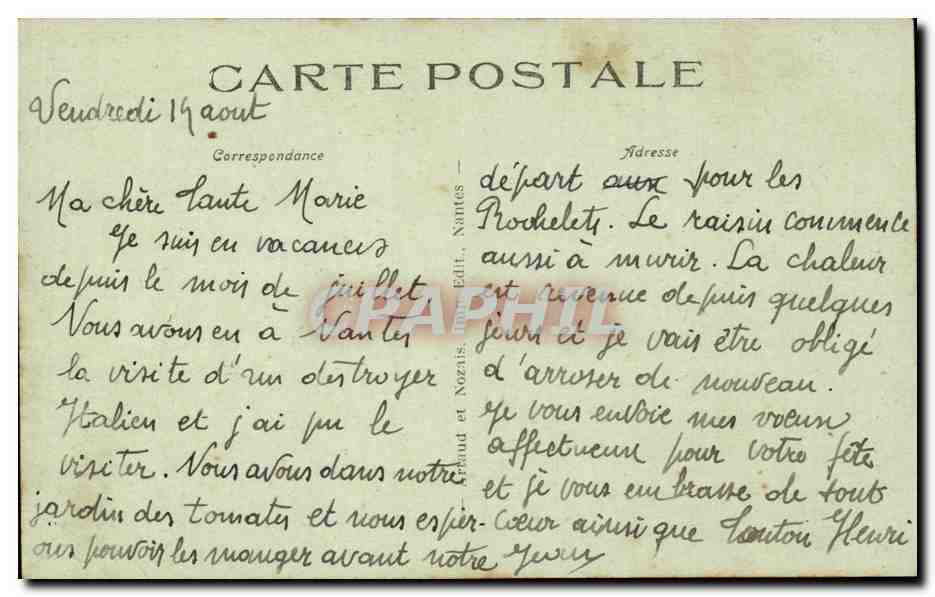 CARTE POSTALE
Vendredi 14 aout
Correspondance
Ma chère tante Marie
Je suis en vacances
depuis le mois de juillet.
Nous avons eu à Nantes
la visite d'un destroyer
Italien et j'ai pu le
visiter. Nous avons dans notre
jardin des tomates et nous espér-
ons pouvoir les manger avant notre
Artaud et Nozais, Imp.-Edit., Nantes
Adresse
départ aux pour les
Rochelets. Le raisin commence
aussi à murir. La chaleur
est revenue depuis quelques
jours et je vais être obligé
d'arroser de nouveau.
Je vous envoie mes voeux
affectueux pour votre fête
et je vous embrasse de tout
coeur ainsi que tonton Henri
Jean
CPAPHIL